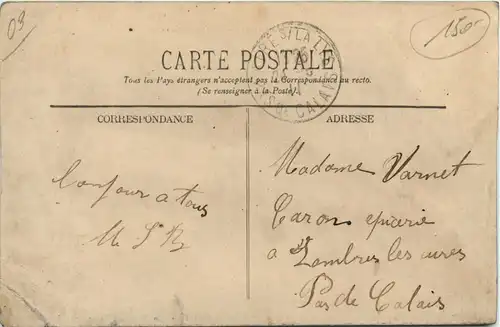 03
1500
CARTE POSTALE
Tous les Pays étrangers n'acceptent pas la Correspondance au recto.
(Se renseigner à la Poste).
CALAIS
CORRESPONDANCE
ADRESSE
Bonjour a tous
Madame Varnet
Caron epicerie
a Lombres les aires
Pas de Calais